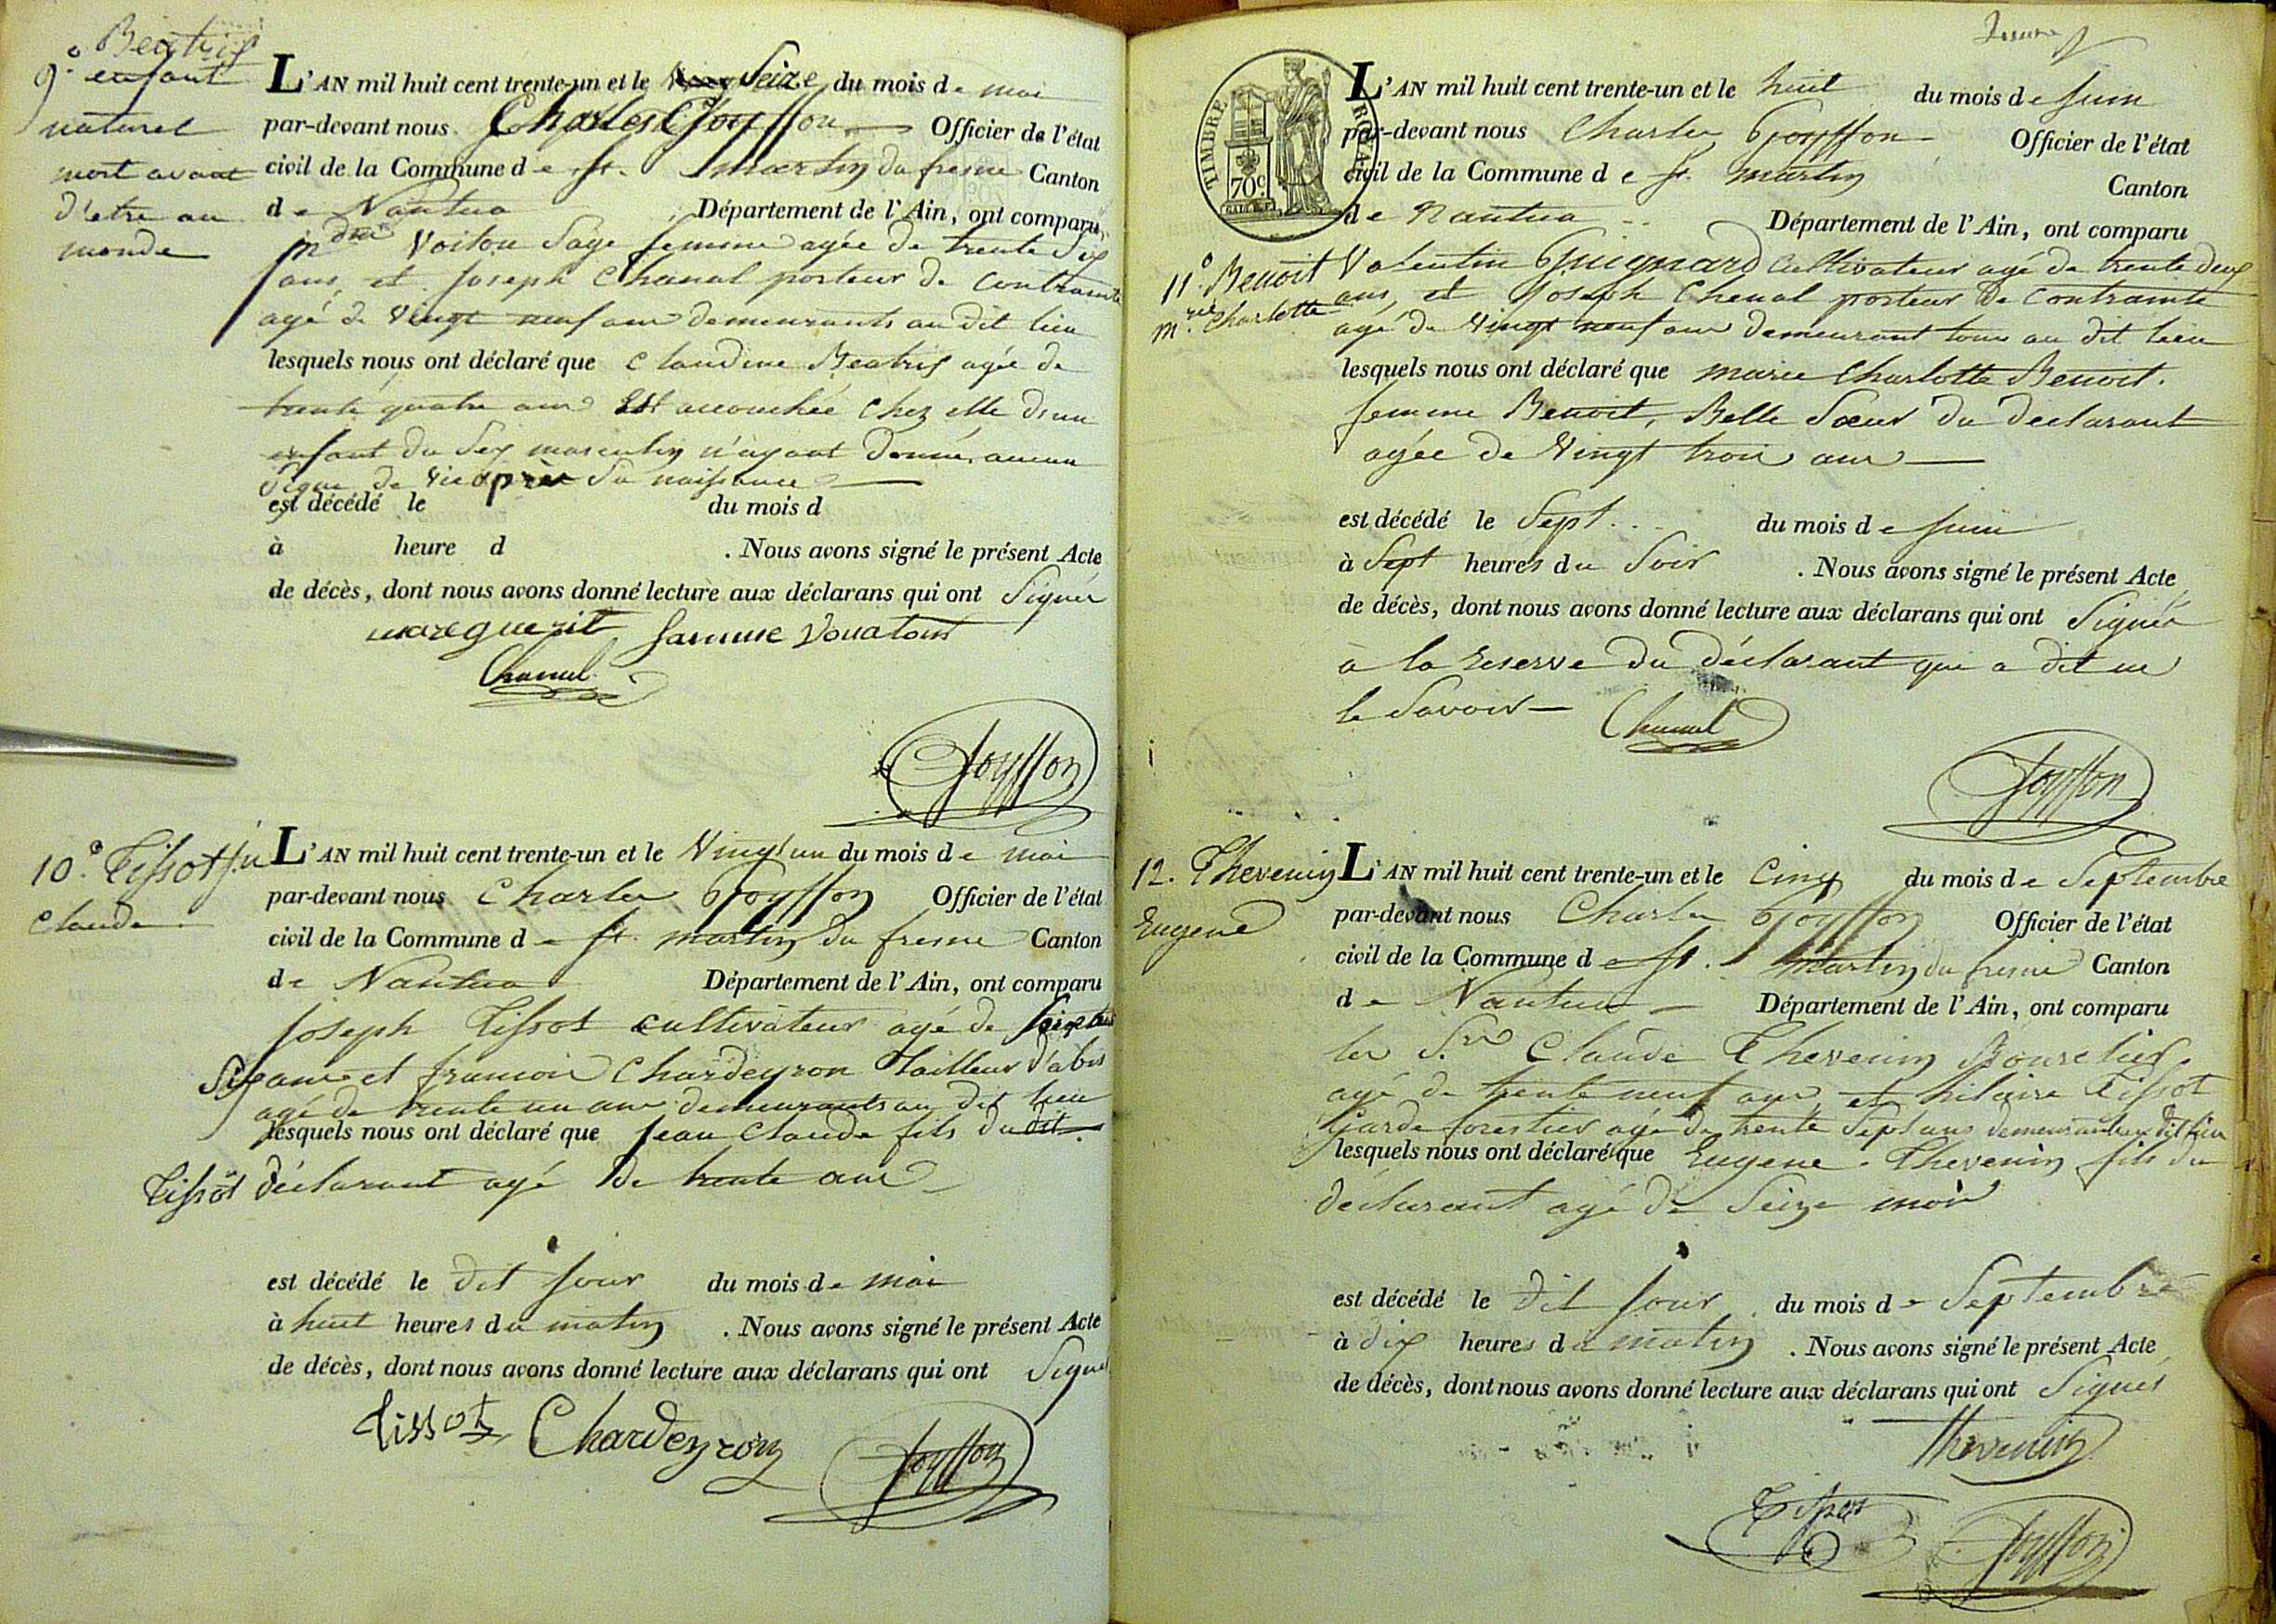 Beatrix
9.° enfant
naturel
mort avant
d'etre au
monde
L'AN mil huit cent trente-un et le Seize du mois de mai
par-devant nous Charles Goyffon Officier de l'état
civil de la Commune de St. martin du fresne Canton
de Nantua Département de l'Ain, ont comparu
Voiton Sage femme agée de trente Six
ans, et Joseph Chanal porteur de Contrainte
agé de Vingt neuf ans demeurants au dit lieu
lesquels nous ont déclaré que Claudine Beatrix agée de
trente quatre ans Est accouchée Chez elle d'un
enfant du Sex masculin n'ayant donné aucun
Signe de Vie après Sa naissance
est décédé le du mois d
à heure d . Nous avons signé le présent Acte
de décès, dont nous avons donné lecture aux déclarans qui ont Signés
mareguerit famme Vouaton
Chanal
Goyffon
10.° Tissot Jn
Claude
L'AN mil huit cent trente-un et le Vingt un du mois de mai
par-devant nous Charles Goyffon Officier de l'état
civil de la Commune de St. martin du fresne Canton
de Nantua Département de l'Ain, ont comparu
Joseph Tissot cultivateur agé de Soixante
Six ans et francois Chardeyron Tailleur d'abis
agé de trente un ans demeurants au dit lieu
lesquels nous ont déclaré que Jean Claude fils du dit
Tissot déclarant agé de trente ans
est décédé le dit Jour du mois de mai
à huit heures du matin . Nous avons signé le présent Acte
de décès, dont nous avons donné lecture aux déclarans qui ont Signés
tissot Chardeyron Goyffon
TIMBRE ROYAL
70c
L'AN mil huit cent trente-un et le huit du mois de Juin
par-devant nous Charles Goyffon Officier de l'état
civil de la Commune de St. Martin Canton
de Nantua Département de l'Ain, ont comparu
11.° Benoit
mrie Charlotte
Valentin Guignard Cultivateur agé de trente deux
ans, et Joseph Chenal porteur de Contrainte
agé de Vingt neuf ans demeurant tous au dit lieu
lesquels nous ont déclaré que marie Charlotte Benoit.
femme Benoit, Belle Sœur du declarant
agée de Vingt trois ans
est décédé le Sept du mois de Juin
à Sept heures du Soir . Nous avons signé le présent Acte
de décès, dont nous avons donné lecture aux déclarans qui ont Signés
à la reserve du déclarant qui a dit ne
le Savoir Chanal
Goyffon
12. Thevenin
Eugene
L'AN mil huit cent trente-un et le Cinq du mois de Septembre
par-devant nous Charles Goyffon Officier de l'état
civil de la Commune de St. Martin du fresne Canton
de Nantua Département de l'Ain, ont comparu
les Srs Claude Thevenin Bourelier
agé de trente neuf ans et hilaire Tissot
Garde forestier agé de trente Sept ans demeurant au dit lieu
lesquels nous ont déclaré que Eugene Thevenin fils du
déclarant agé de Seize mois
est décédé le dit Jour du mois de Septembre
à dix heures du matin . Nous avons signé le présent Acte
de décès, dont nous avons donné lecture aux déclarans qui ont Signés
Thevenin
Tissot Goyffon